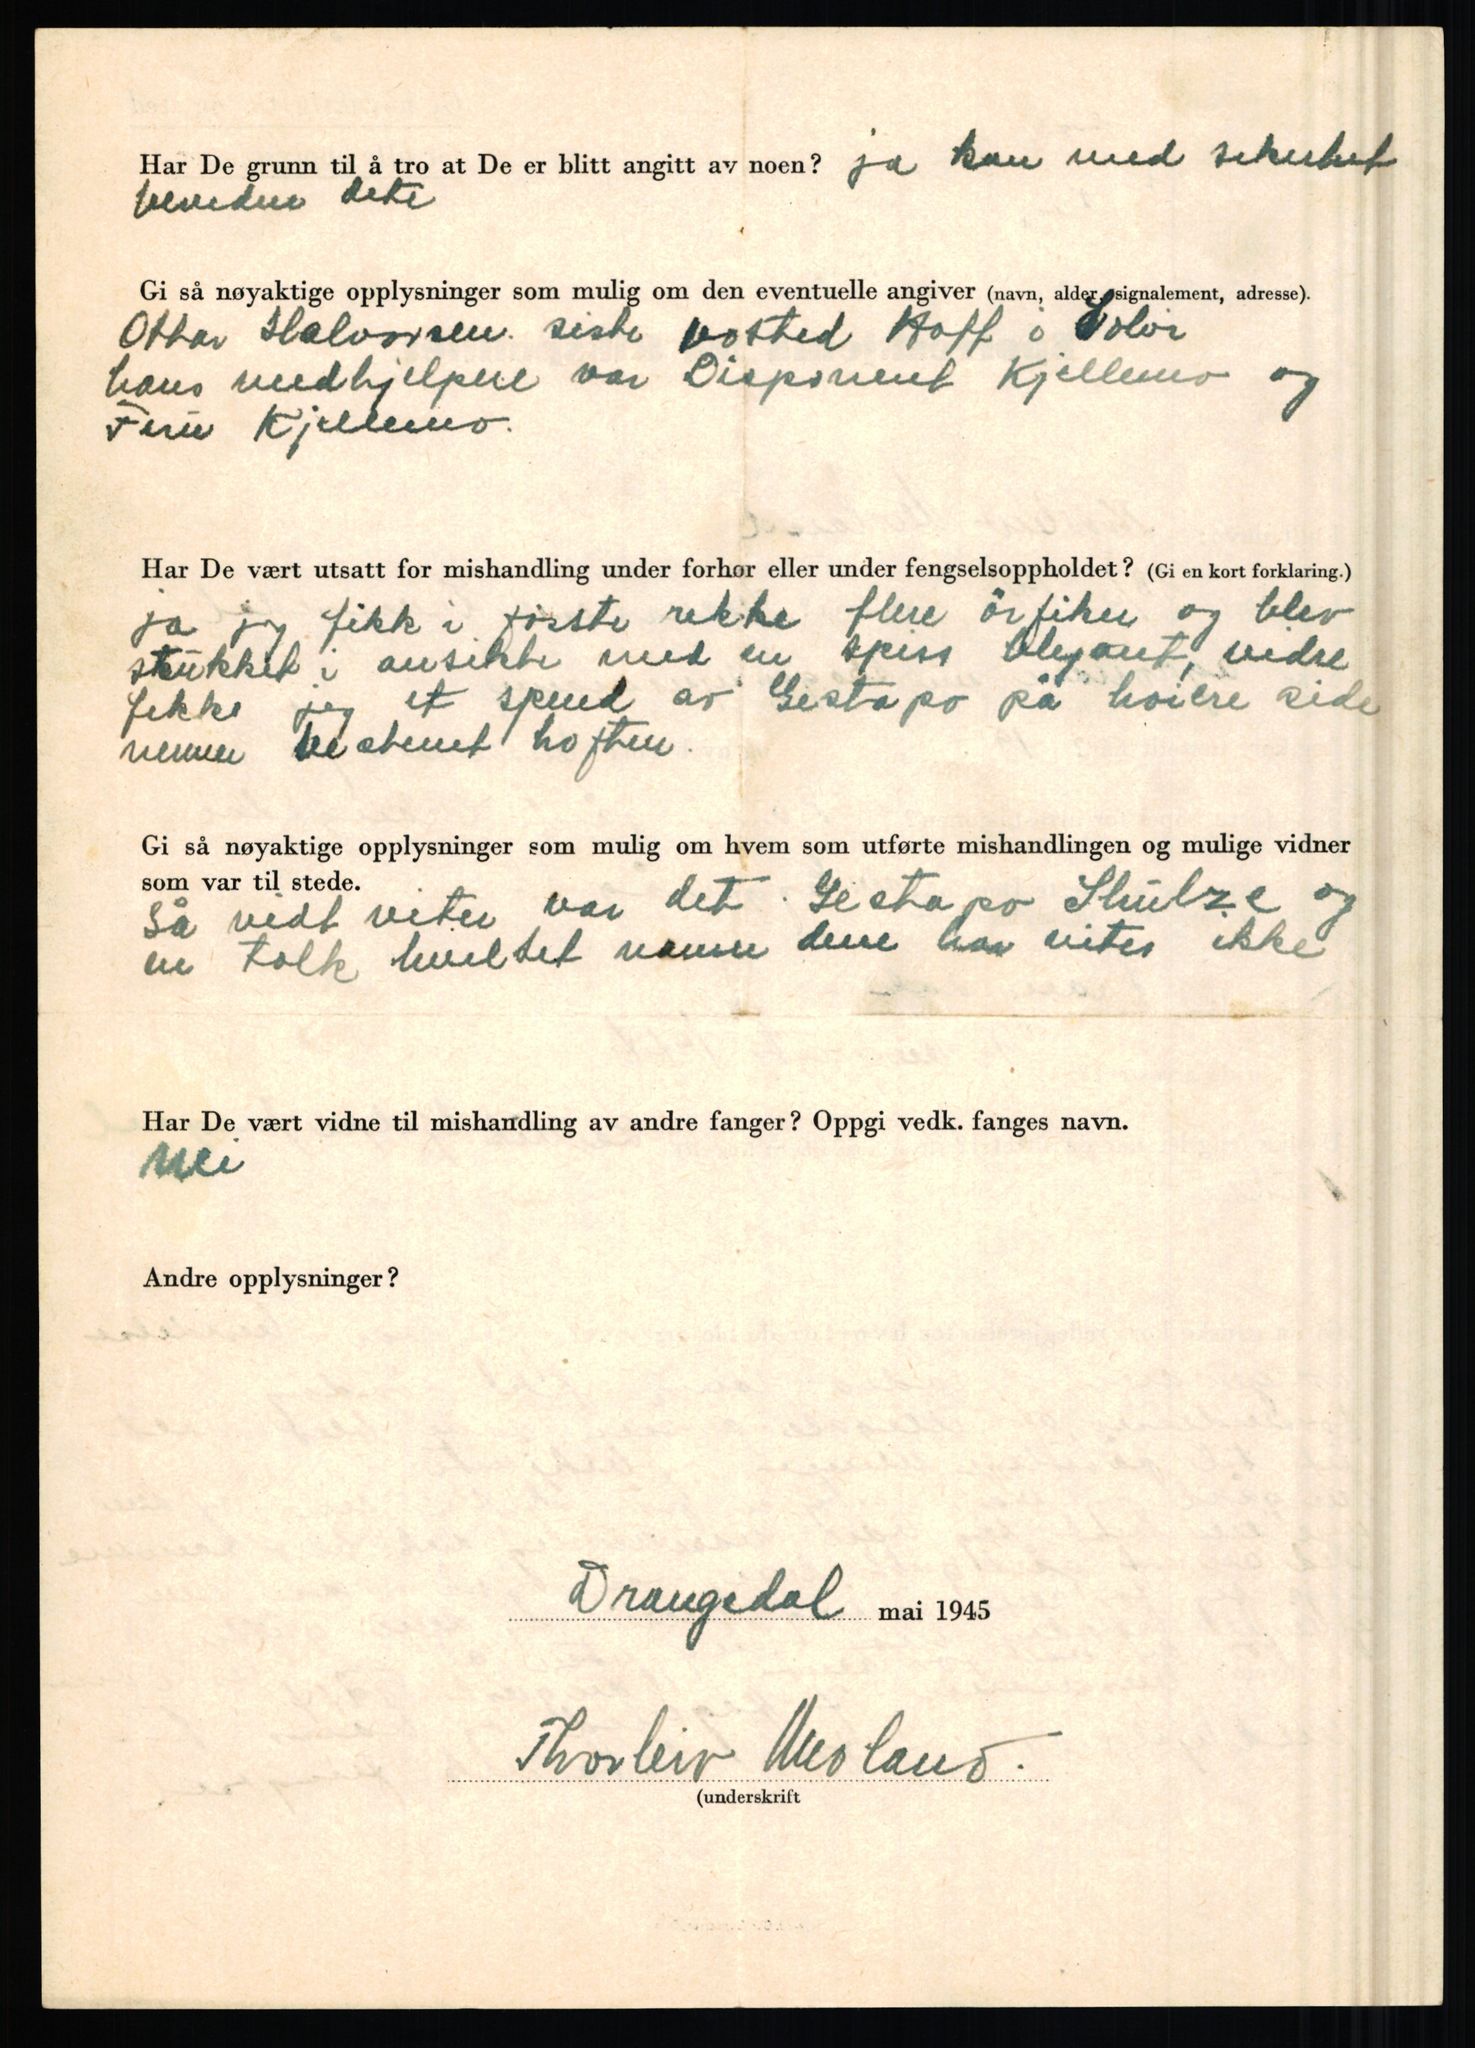 Har De grunn til å tro at De er blitt angitt av noen? ja kan med sikerhet
dete
Gi så nøyaktige opplysninger som mulig om den eventuelle angiver (navn, alder, signalement, adresse).
Ottar Halvorsen. siste bosted Hoff i Solør
hans medhjelpere var Disponent Kjellemo og
Fru Kjellemo.
Har De vært utsatt for mishandling under forhør eller under fengselsoppholdet? (Gi en kort forklaring.)
ja jeg fikk i første rekke flere örfiker og blev
stukket i ansikte med en spiss blyant, vidre
fikke jeg et spend av Gestapo på høiere side
nemer bestemt hoften.
Gi så nøyaktige opplysninger som mulig om hvem som utførte mishandlingen og mulige vidner
som var til stede.
Så vidt viter var det Gestapo Shulze og
en tolk hvilket navne dene har vites ikke
Har De vært vidne til mishandling av andre fanger? Oppgi vedk. fanges navn.
Nei
Andre opplysninger?
Drangedal mai 1945
Thorleiv Moland.
(underskrift